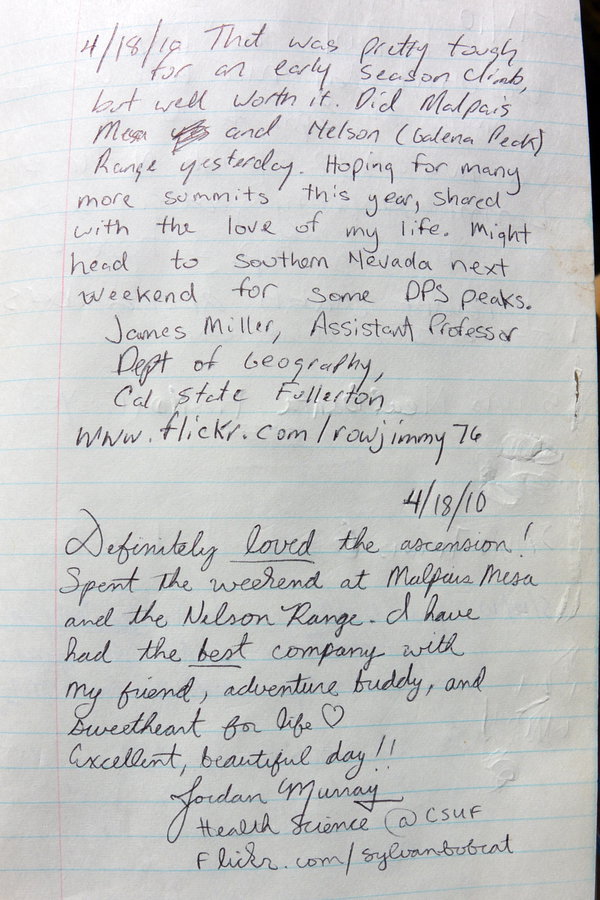 4/18/10 That was pretty tough
for an early season climb,
but well worth it. Did Malpais
Mesa and Nelson (Galena Peak)
Range yesterday. Hoping for many
more summits this year, shared
with the love of my life. Might
head to southern Nevada next
weekend for some DPS peaks.
James Miller, Assistant Professor
Dept of Geography,
Cal State Fullerton
www.flickr.com/rowjimmy76
4/18/10
Definitely loved the ascension!
Spent the weekend at Malpais Mesa
and the Nelson Range. I have
had the best company with
my friend, adventure buddy, and
sweetheart for life ♡
Excellent, beautiful day!!
Jordan Murray
Health Science @ CSUF
Flickr.com/sylvanbobcat